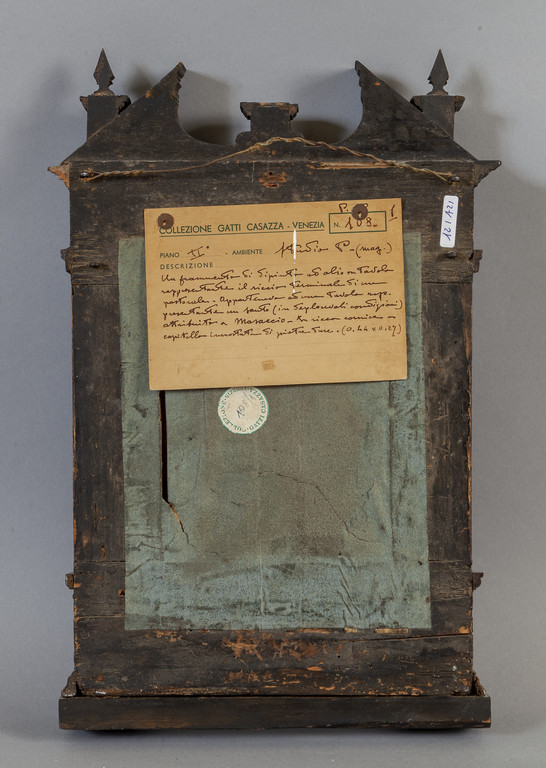 COLLEZIONE GATTI CASAZZA - VENEZIA
N. 108
PIANO II° - AMBIENTE Studio P- (mag.)
DESCRIZIONE
Un frammento di dipinto ad olio su tavola
rappresentante il riccio terminale di un
pastorale. Apparteneva ad una tavola rap-
presentante un santo (in deplorevoli condizioni)
attribuito a Masaccio. In ricca cornice a
capitello di pietre dure. (0.44 x 0.27)
121421